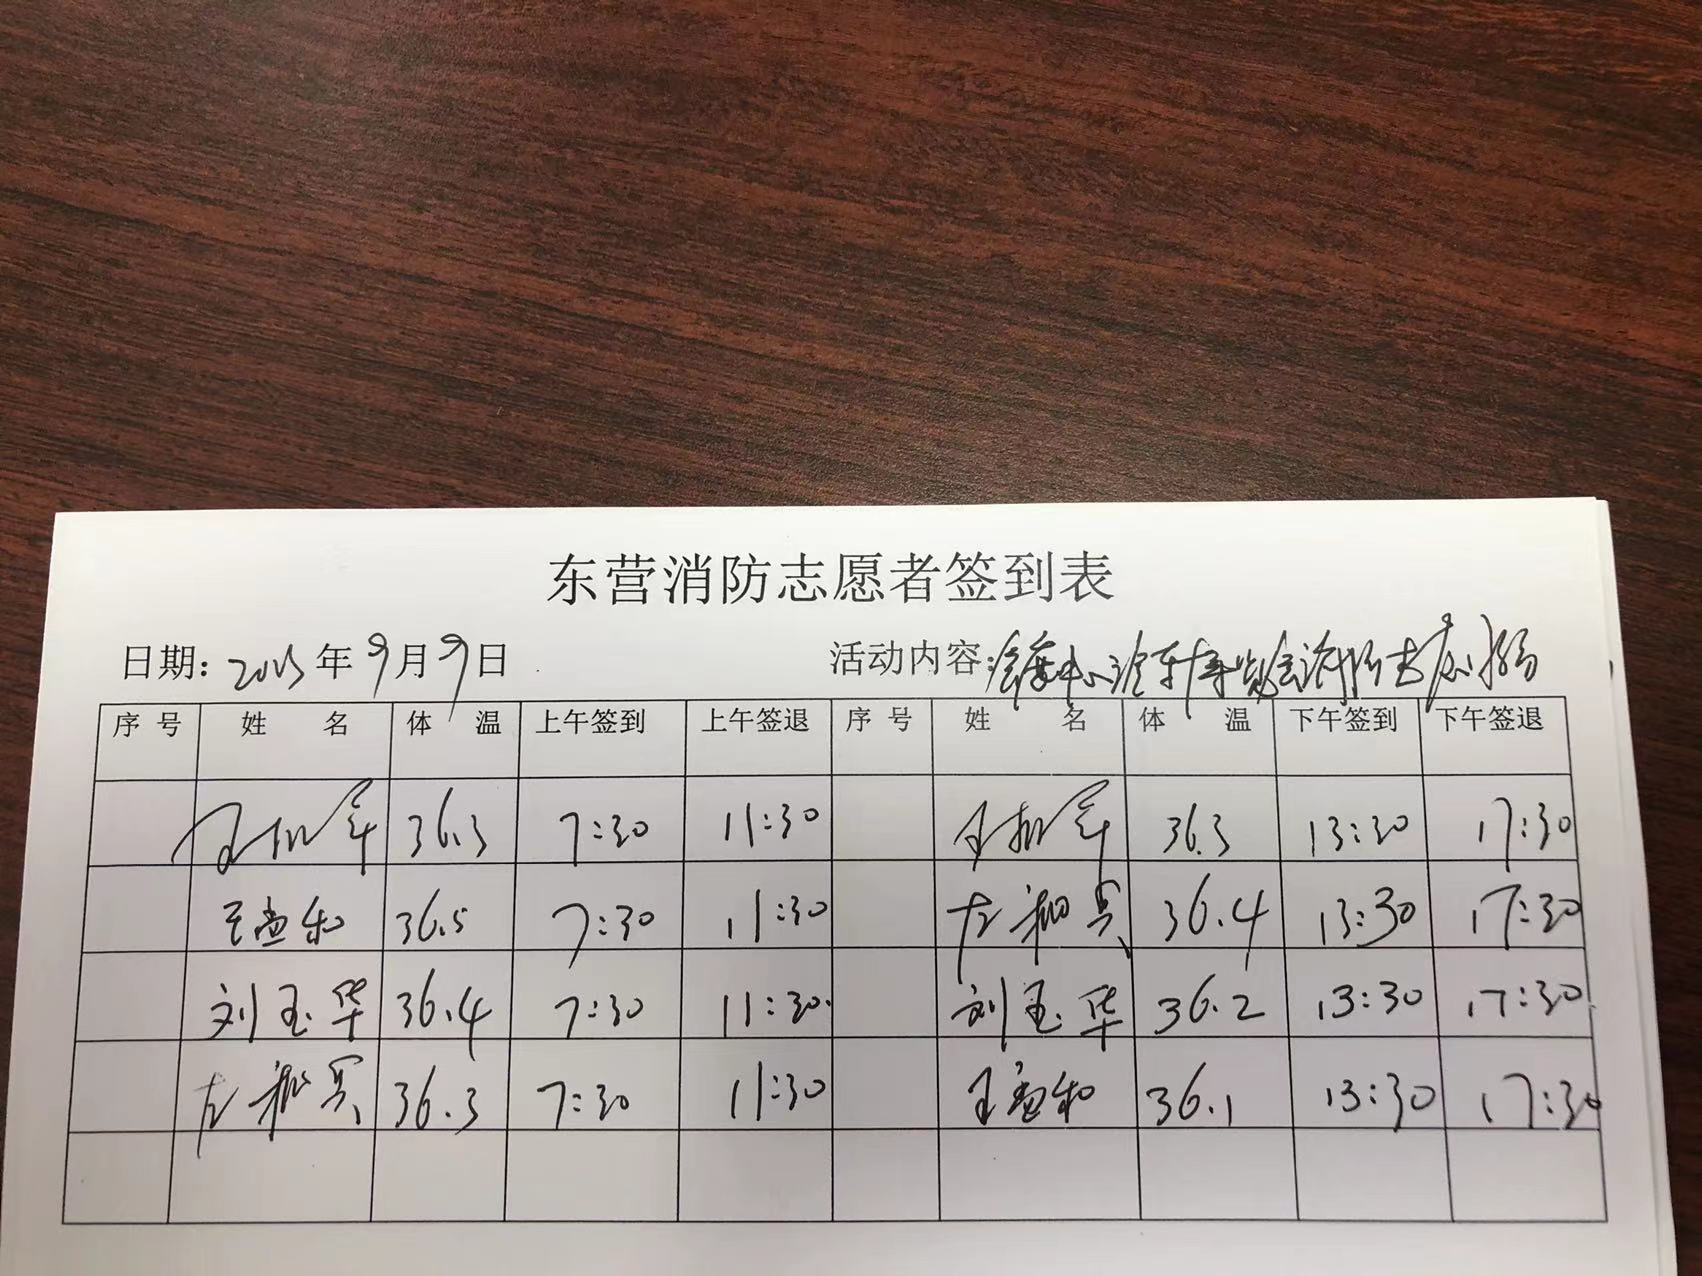 东营消防志愿者签到表
日期: 年9月9日 活动内容:
序号 姓名 体温 上午签到 上午签退 序号 姓名 体温 下午签到 下午签退
王 军 36.3 7:30 11:30 王 军 36.3 13:30 17:30
王孟和 36.5 7:30 11:30 左 36.4 13:30 17:30
刘玉华 36.4 7:30 11:30 刘玉华 36.2 13:30 17:30
左 36.3 7:30 11:30 王孟和 36.1 13:30 17:30